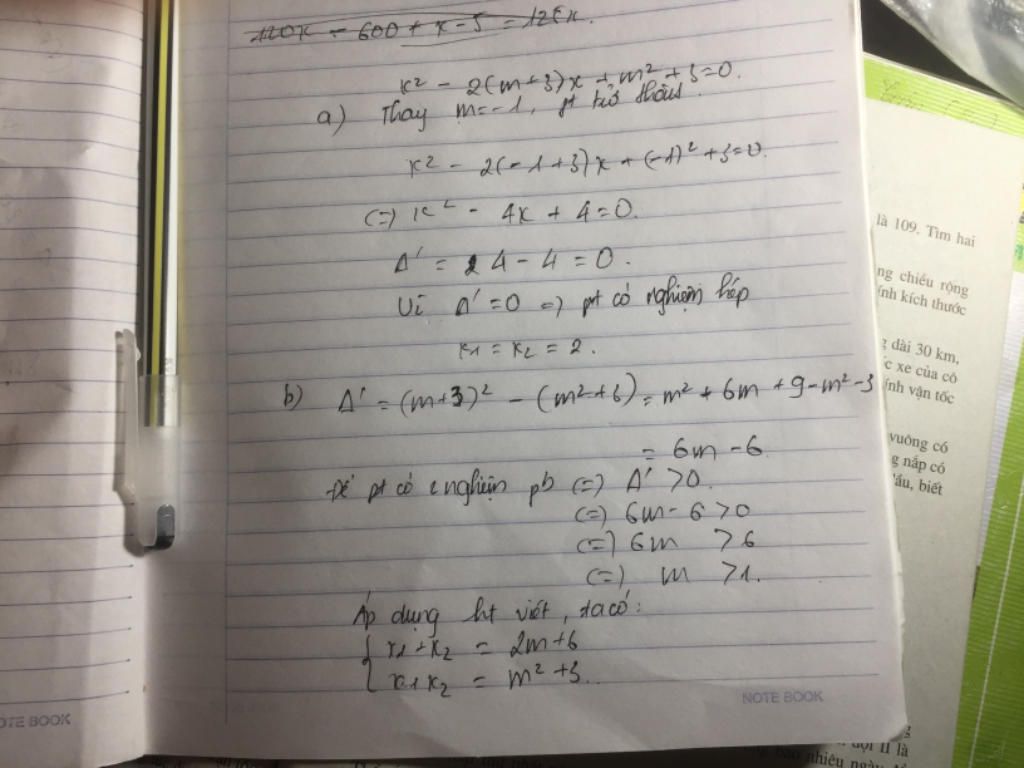 120x - 600 + x - 5 = 126x.
x² - 2(m+3)x + m² + 3 = 0.
a) Thay m = -1, pt trở thành
x² - 2(-1+3)x + (-1)² + 3 = 0.
(=) x² - 4x + 4 = 0.
Δ' = 4 - 4 = 0.
Vì Δ' = 0 => pt có nghiệm kép
x1 = x2 = 2.
b) Δ' = (m+3)² - (m²+3) = m² + 6m + 9 - m² - 3
= 6m - 6.
Để pt có 2 nghiệm pb (=) Δ' > 0.
(=) 6m - 6 > 0
(=) 6m > 6
(=) m > 1.
Áp dụng ht viét, ta có:
{ x1 + x2 = 2m + 6
x1x2 = m² + 3.
NOTE BOOK
OTE BOOK
là 109. Tìm hai
ng chiều rộng
ính kích thước
dài 30 km,
c xe của cô
ính vận tốc
vuông có
g nắp có
ầu, biết
đội II là
bao nhiêu ngày